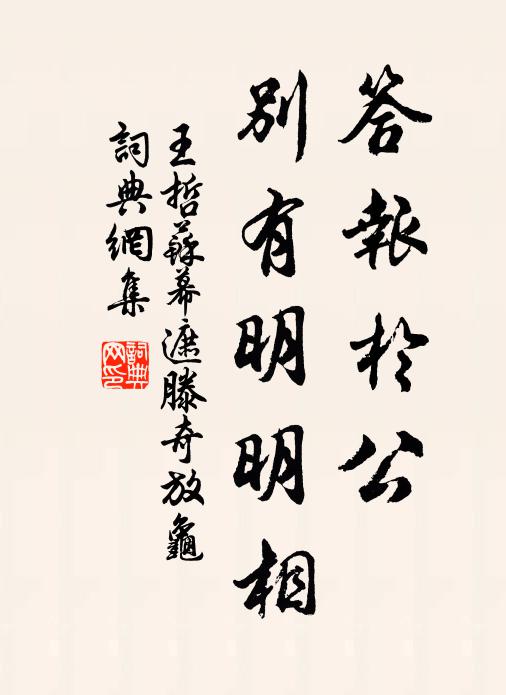 答報於公
別有明明相
王哲蘇幕遮滕奇放龜
詞典網集
詞典
网印